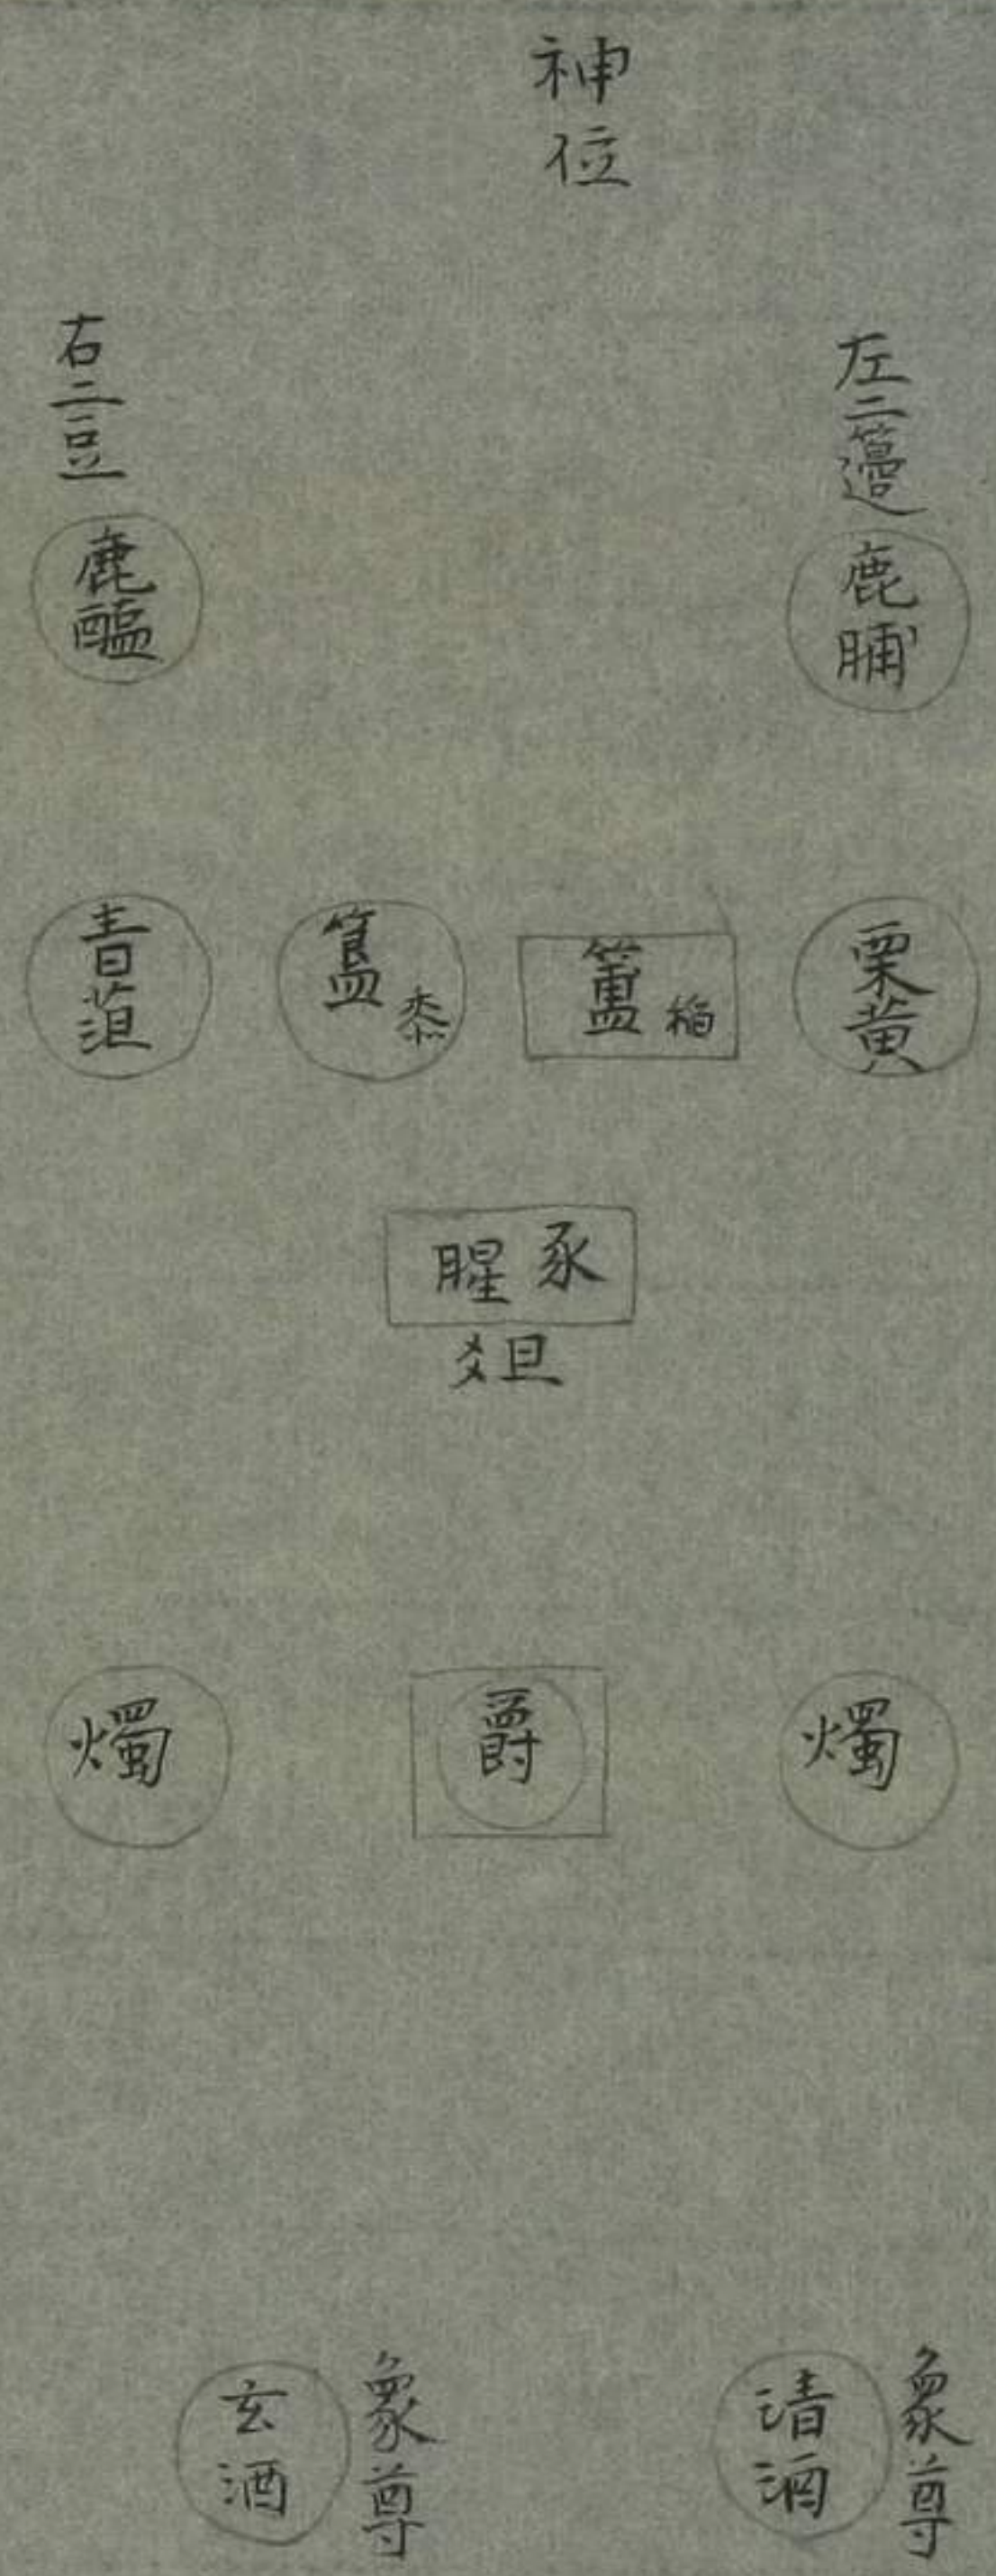 神位
左二籩
鹿脯
右二豆
鹿醢
栗黄
簠 稻
簋 黍
青菹
豕腥
俎
燭
爵
燭
象尊
清酒
象尊
玄酒